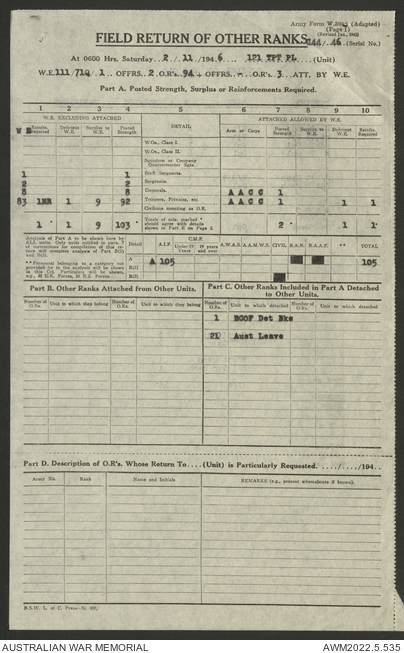 Army Form W.3009 (Adapted)
(Page 1)
(Revised Jan., 1945)
FIELD RETURN OF OTHER RANKS 144/46 (Serial No.)
At 0600 Hrs. Saturday 2 / 11 /194 6. 121 TPT PL (Unit)
W.E. 111/719/1 OFFRS. 2 O.R's. 94 + OFFRS — O.R's. 3 ATT. BY W.E.
Part A. Posted Strength, Surplus or Reinforcements Required.
1 2 3 4 5 6 7 8 9 10
W.E. EXCLUDING ATTACHED DETAIL ATTACHED ALLOWED BY W.E.
W E Reinfts. Required Deficient W.E. Surplus to W.E. Posted Strength Arm or Corps Posted Strength Surplus to W.E. Deficient W.E. Reinfts. Required
W.Os., Class I.
W.Os., Class II.
Squadron or Company Quartermaster Sgts.
1 1 Staff Sergeants.
2 2 Sergeants.
8 8 Corporals. A A C C 1
83 1HR 1 9 92 Troopers, Privates, etc. A A C C 1 1 1
Civilians counting as O.R.
1 * 1 9 103 * Totals of cols. marked * should agree with details shown in Part E on Page 2. 2 * 1 1 *
Analysis of Part A to be shown here by
A.I.F. Detail C.M.F. Under 19 years 19 years and over A.W.A.S. A.A.M.W.S. CIVIL R.A.N. R.A.A.F. ** TOTAL
A A 105 105
B(1)
B(2)
** Personnel belonging to a category not
Part B. Other Ranks Attached from Other Units.
Part C. Other Ranks Included in Part A Detached to Other Units.
Number of O.Rs. Unit to which they belong Number of O.Rs. Unit to which they belong Number of O.Rs. Unit to which detached Number of O.Rs. Unit to which detached
1 BCOF Det Bks
21 Aust Leave
Part D. Description of O.R's. Whose Return To....(Unit) is Particularly Requested. ..../..../194..
Army No. Rank Name and Initials REMARKS (e.g., present whereabouts if known).
AUSTRALIAN WAR MEMORIAL
AWM2022.5.535